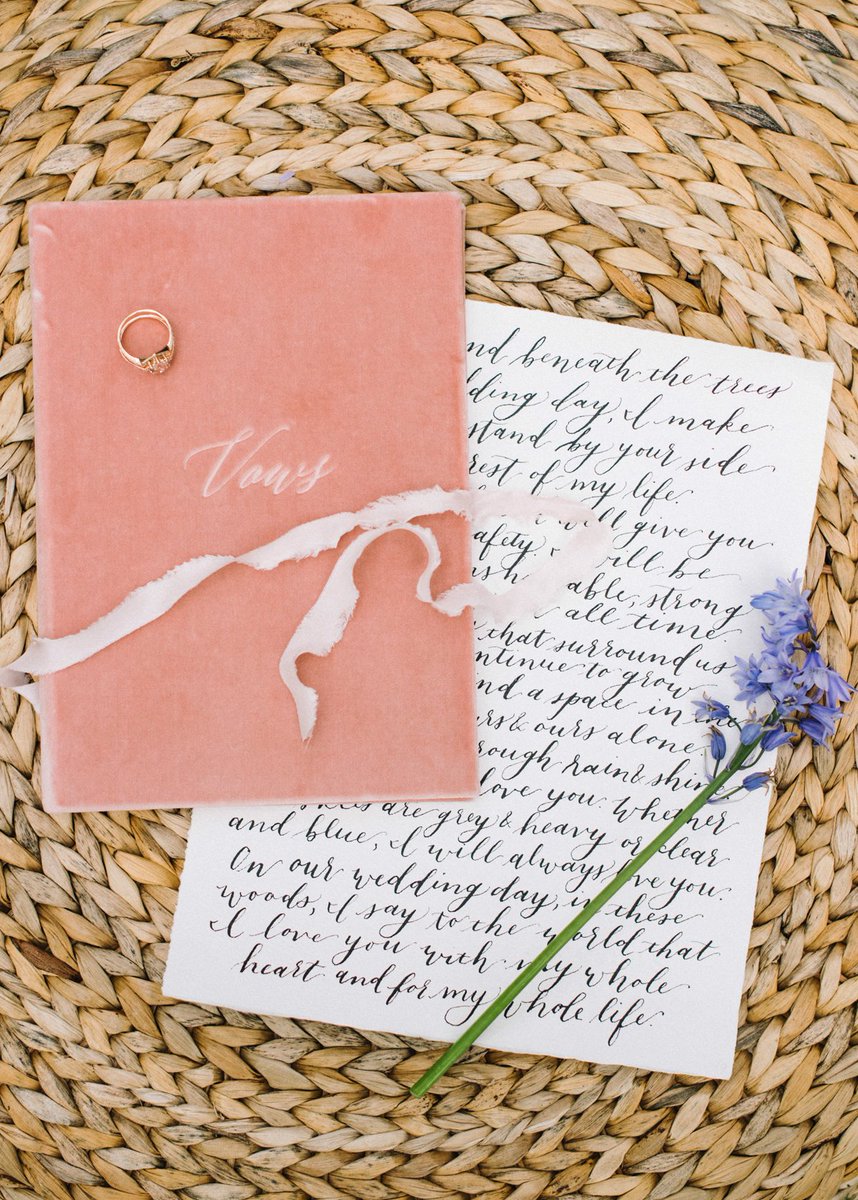 Vows
nd beneath the trees
dding day, I make
stand by your side
rest of my life.
I will give you
afety. I will be
able, strong
all time.
that surround us
ontinue to grow
nd a space in
rs & ours alone.
rough rain & shine
love you. Whether
are grey & heavy or clear
and blue, I will always love you.
On our wedding day, in these
woods, I say to the world that
I love you with my whole
heart and for my whole life.